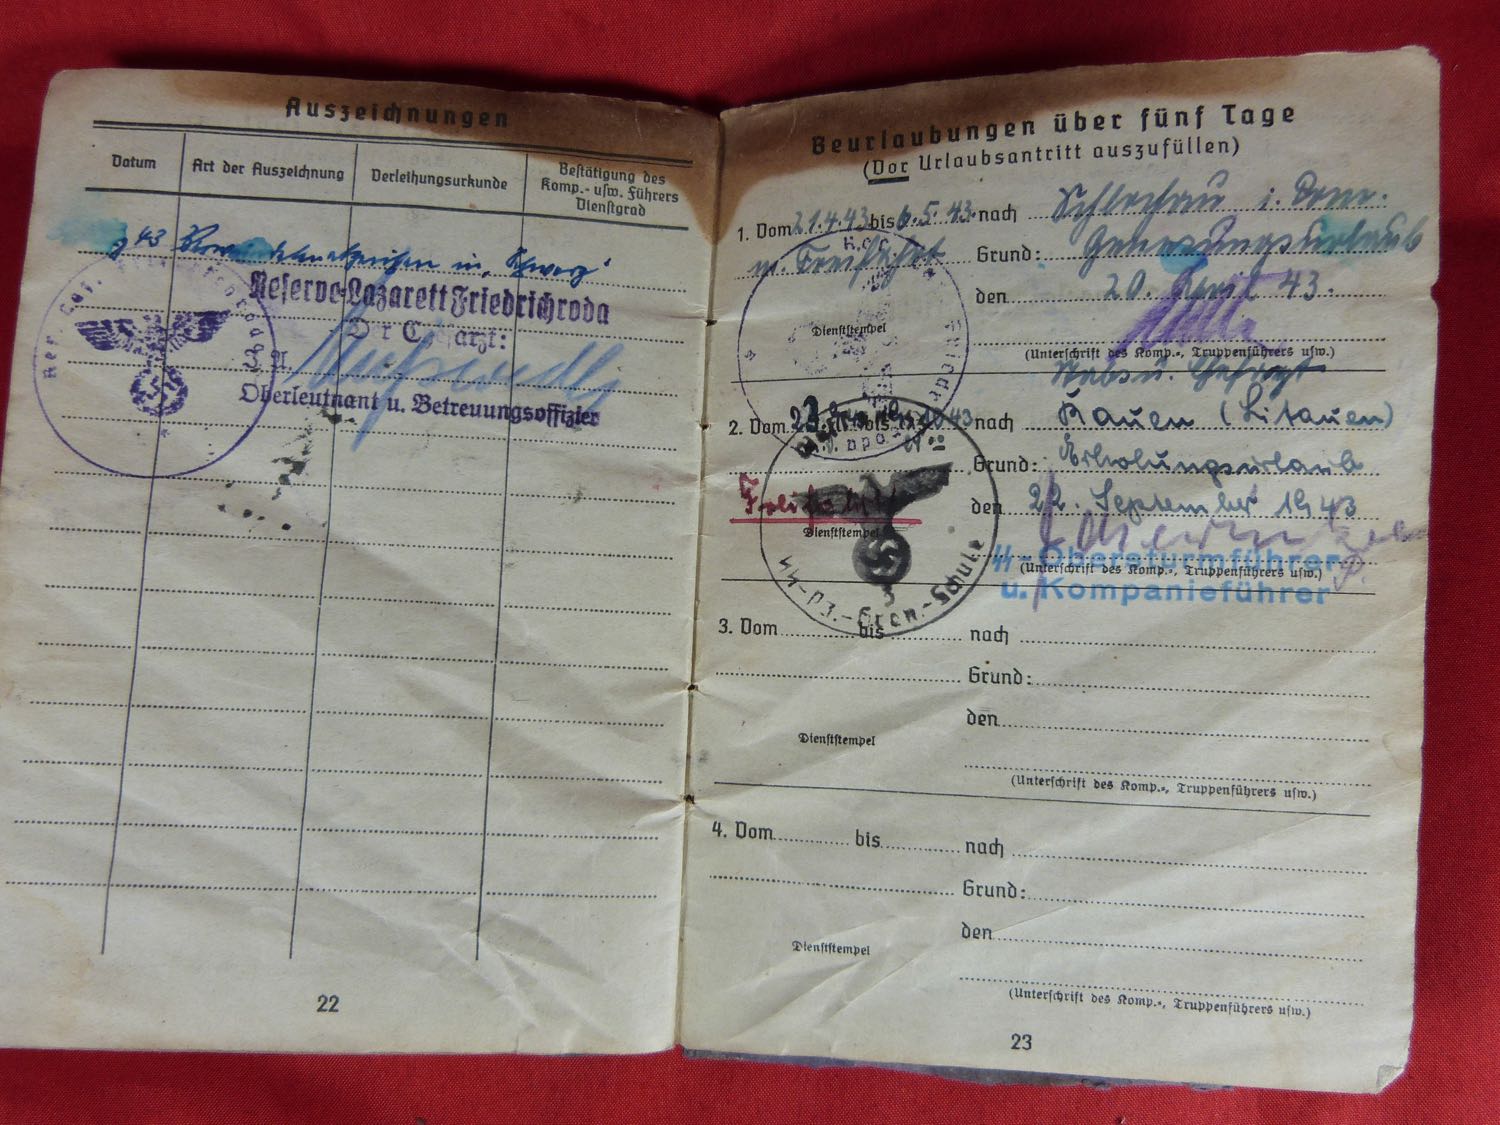 Auszeichnungen
Datum
Art der Auszeichnung
Verleihungsurkunde
Bestätigung des
Komp.- usw. Führers
Dienstgrad
43 in "Schwarz"
Reserve-Lazarett Friedrichroda
Der Chefarzt:
Oberleutnant u. Betreuungsoffizier
22
Beurlaubungen über fünf Tage
(Vor Urlaubsantritt auszufüllen)
1. Vom 21.4.43 bis 6.5.43 nach Schlochau i. Pom.
m. Freifahrt Grund: Genesungsurlaub
den 20. April 43.
Dienststempel
(Unterschrift des Komp.-, Truppenführers usw.)
2. Vom 23. bis 1943 nach Kauen (Litauen)
Grund: Erholungsurlaub
Freifahrt den 22. September 1943
Dienststempel
SS-Pz.-Gren.-Schule
SS-Obersturmführer
(Unterschrift des Komp.-, Truppenführers usw.)
u. Kompanieführer
3. Vom bis nach
Grund:
den
Dienststempel
(Unterschrift des Komp.-, Truppenführers usw.)
4. Vom bis nach
Grund:
den
Dienststempel
(Unterschrift des Komp.-, Truppenführers usw.)
23